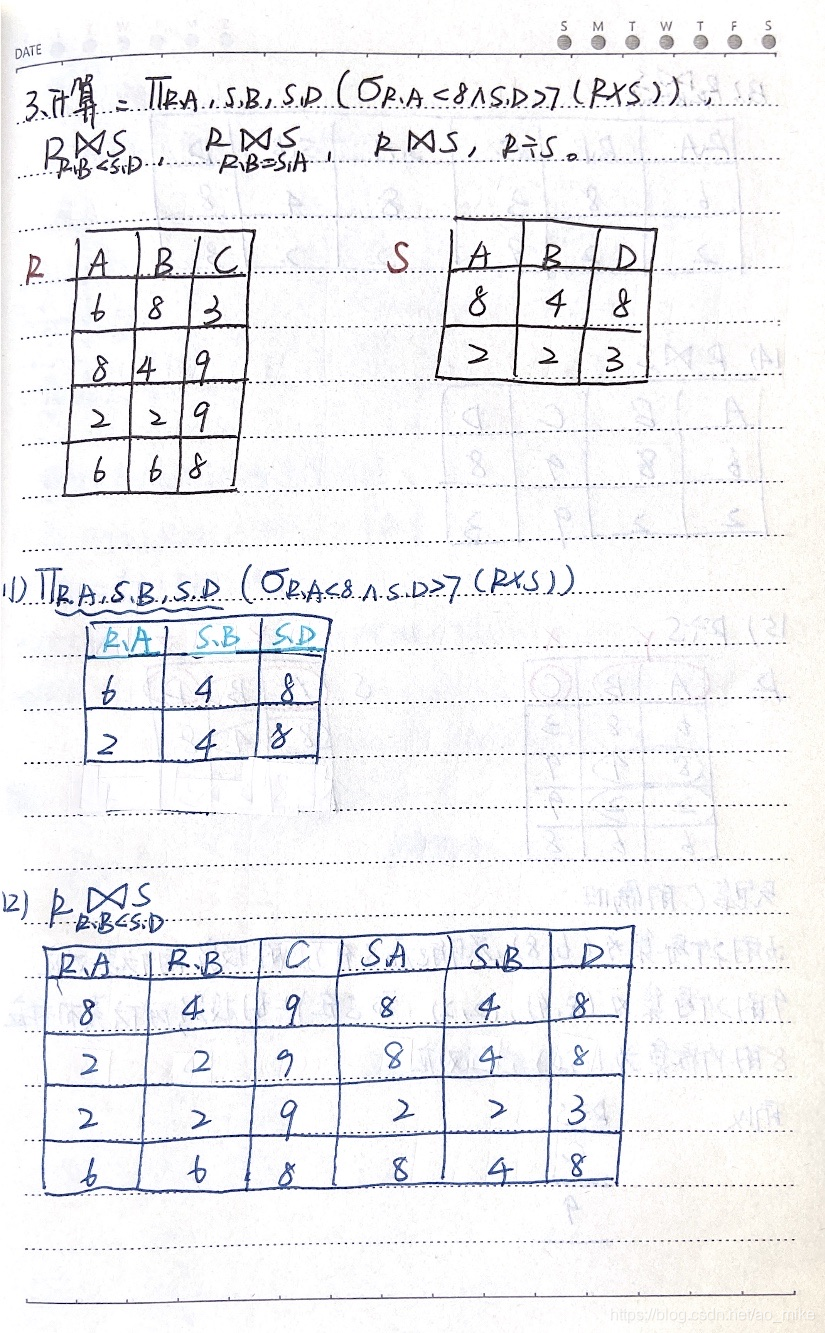 S M T W T F S
DATE
3.计算 = ΠR.A, S.B, S.D (σR.A<8∧S.D>7 (R×S)),
R⋈S R.B<S.D, R⋈S R.B=S.A, R⋈S, R÷S。
R
A B C
6 8 3
8 4 9
2 2 9
6 6 8
S
A B D
8 4 8
2 2 3
(1) ΠR.A, S.B, S.D (σR.A<8∧S.D>7 (R×S))
R.A S.B S.D
6 4 8
2 4 8
(2) R⋈S R.B<S.D
R.A R.B C S.A S.B D
8 4 9 8 4 8
2 2 9 8 4 8
2 2 9 2 2 3
6 6 8 8 4 8
https://blog.csdn.net/ao_mike